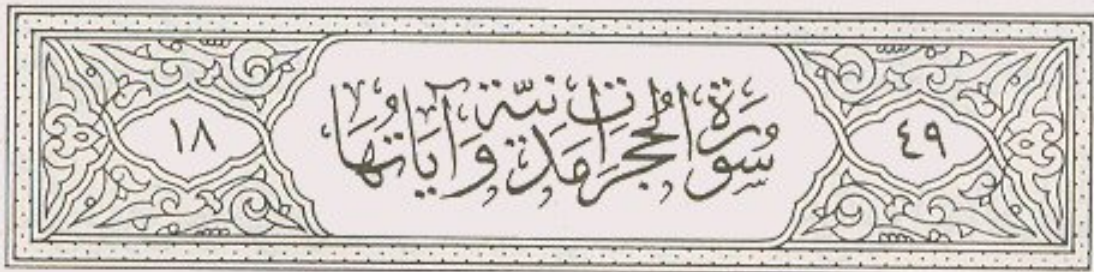 ٤٩ سُورَةُ الْحُجُرَاتِ مَدَنِيَّةٌ وَآيَاتُهَا ١٨